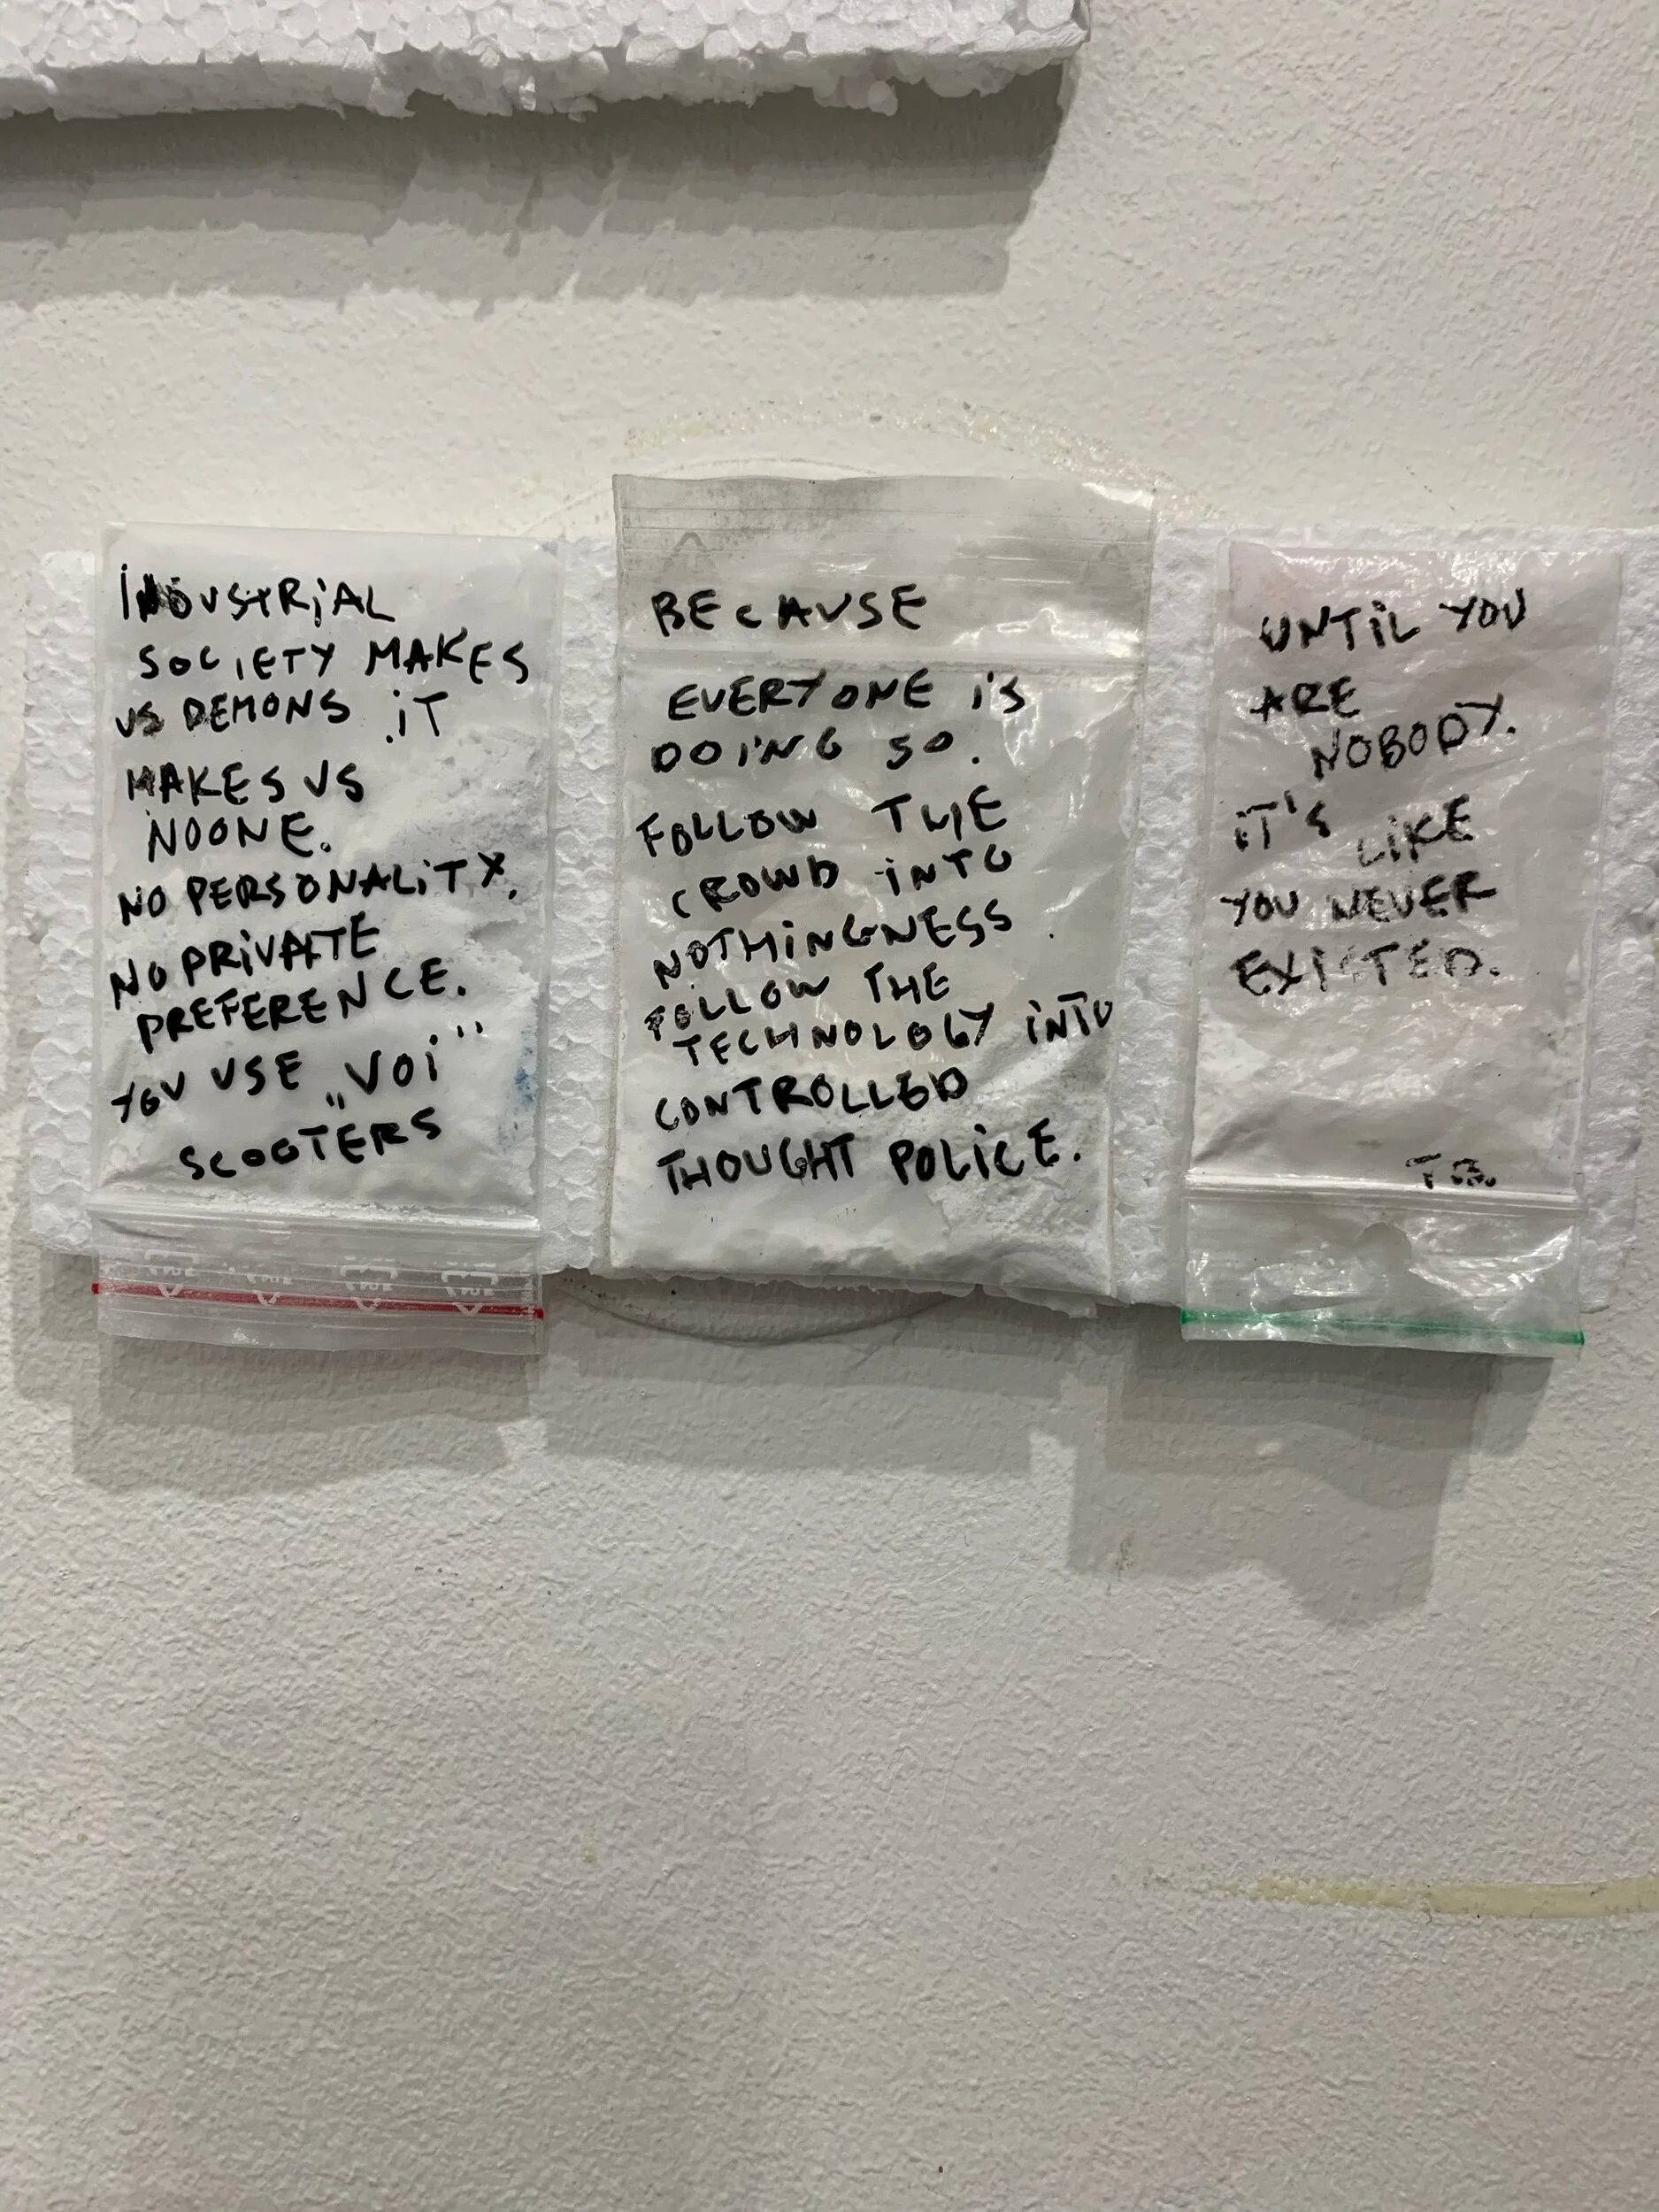 INDUSTRiAL
SOCIETY MAKES
US DEMONS .iT
MAKES US
NOONE.
NO PERSONALiTY.
NO PRiVATE
PREFERENCE.
YOU USE „VOi"
SCOOTERS
BECAUSE
EVERYONE iS
DOiNG SO.
FOLLOW THE
CROWD iNTO
NOTHiNGNESS.
FOLLOW THE
TECHNOLOGY iNTO
CONTROLLED
THOUGHT POLiCE.
UNTiL YOU
ARE
NOBODY.
iT'S LiKE
YOU NEVER
EXISTED.